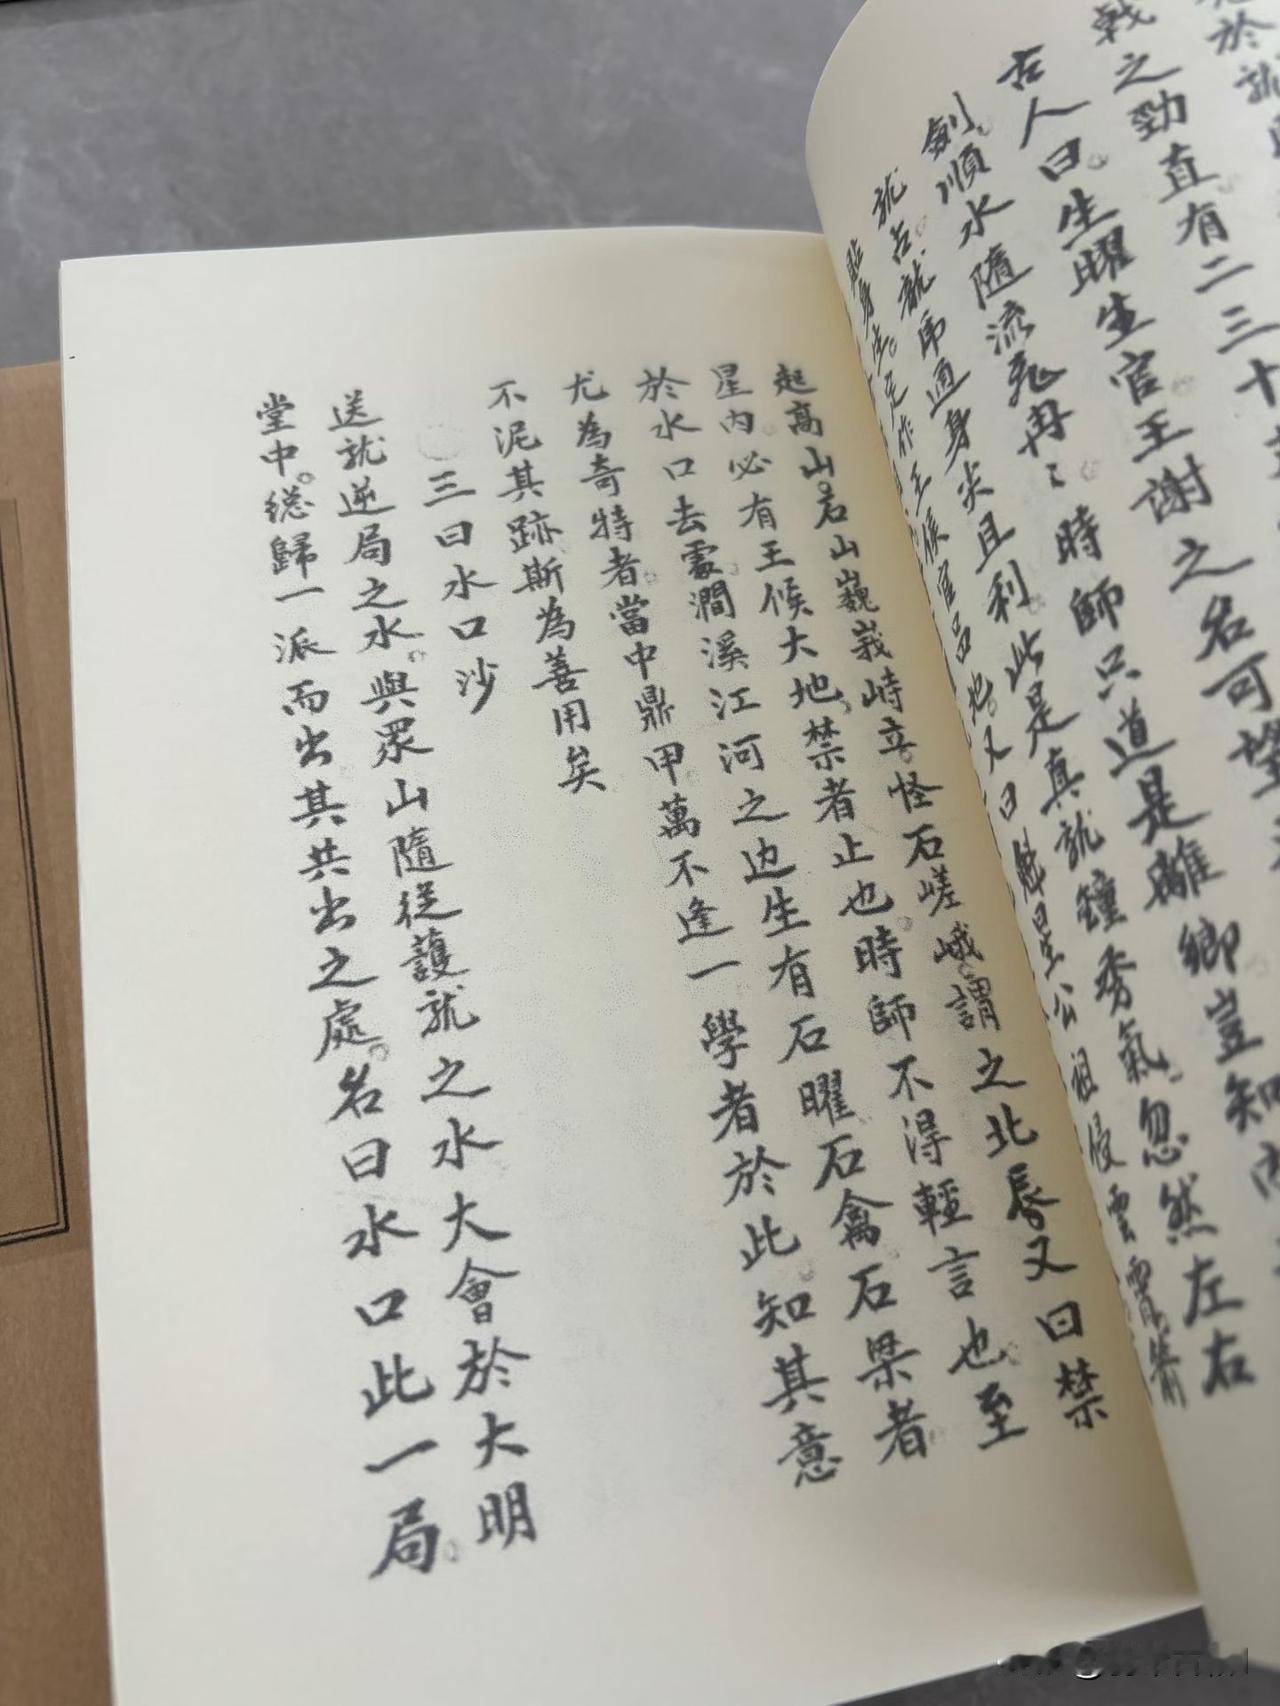 戟之勁直有二三十
古人曰。生曜生官王謝之名可望
劍。順水隨流飛冉々時師只道是離鄉豈知内
通身尖且利此是真龍鐘秀氣忽然左右
貼身生。足作王侯官品地。又曰魁星公祖侵雲霄
起高山。若山巍峩峙立。怪石嵯峨。謂之北辰又曰禁
星内必有王候大地。禁者止也。時師不得輕言也。至
於水口去處。澗溪江河之边生有石曜石禽石梁者
尤為奇特者。當中鼎甲。萬不逢一學者於此知其意
不泥其跡斯為善用矣
三曰水口沙
送龍逆局之水。與眾山隨從護龍之水大會於大明
堂中。總歸一派而出其共出之處。名曰水口此一局